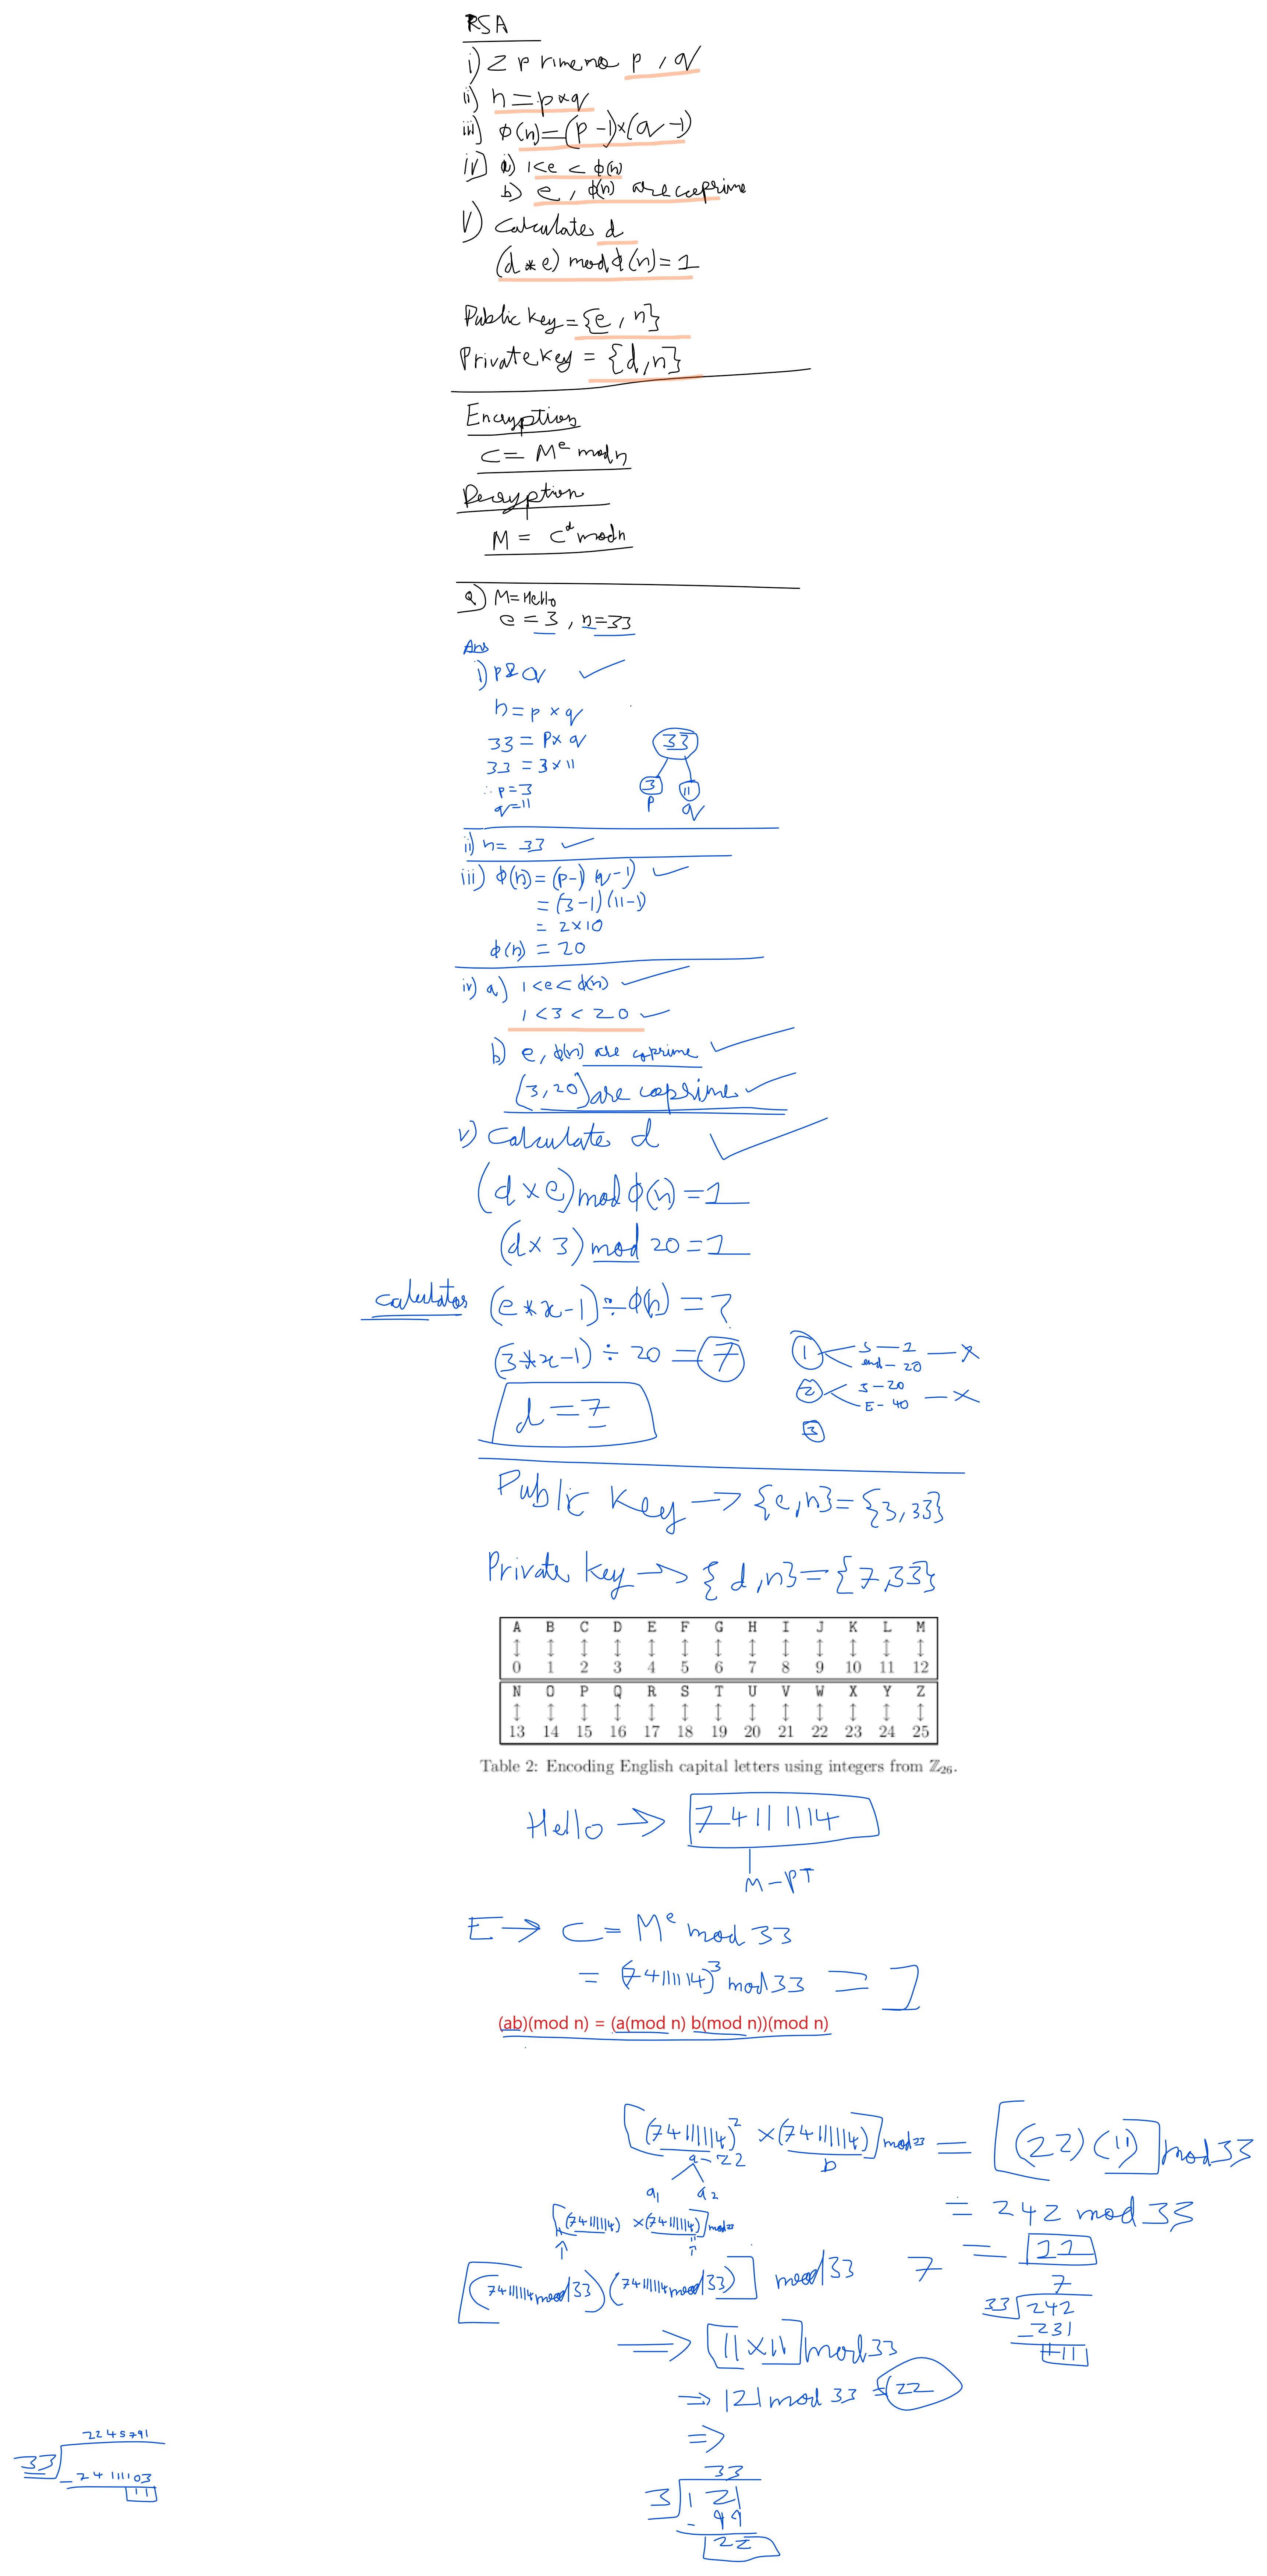 RSA
i) 2 prime no p, q
ii) n = p*q
iii) φ(n) = (p-1)*(q-1)
iv) a) 1<e < φ(n)
b) e, φ(n) are coprime
V) Calculates d
(d * e) mod φ(n) = 1
Public key = {e, n}
Private key = {d, n}
Encryption
C = M^e mod n
Decryption
M = C^d mod n
Q) M = Hello
e = 3, n = 33
Ans
i) p & q ✓
n = p × q
33 = p × q
33 = 3 × 11
∴ p = 3
q = 11
33
3 11
p q
ii) n = 33 ✓
iii) φ(n) = (p-1)(q-1) ✓
= (3-1)(11-1)
= 2×10
φ(n) = 20
iv) a) 1<e<φ(n) ✓
1 < 3 < 20 ✓
b) e, φ(n) are coprime ✓
(3, 20) are coprime ✓
v) Calculate d ✓
(d × e) mod φ(n) = 1
(d × 3) mod 20 = 1
calculator (e * x - 1) ÷ φ(n) = ?
(3 * x - 1) ÷ 20 = 7
1 S – 1 end – 20 – x
2 S – 20 E – 40 – x
3
d = 7
Public Key → {e, n} = {3, 33}
Private key → {d, n} = {7, 33}
A B C D E F G H I J K L M
↕ ↕ ↕ ↕ ↕ ↕ ↕ ↕ ↕ ↕ ↕ ↕ ↕
0 1 2 3 4 5 6 7 8 9 10 11 12
N O P Q R S T U V W X Y Z
↕ ↕ ↕ ↕ ↕ ↕ ↕ ↕ ↕ ↕ ↕ ↕ ↕
13 14 15 16 17 18 19 20 21 22 23 24 25
Table 2: Encoding English capital letters using integers from ℤ₂₆.
Hello → 74111114
M – PT
E → C = M^e mod 33
= (74111114)³ mod 33 =
(ab)(mod n) = (a(mod n) b(mod n))(mod n)
[(74111114)² × (74111114)] mod 33 = [(22)(11)] mod 33
a = 22 b
a₁ a₂
= 242 mod 33
[(74111114) × (74111114)] mod 33
11 11
= 11
[(74111114 mod 33)(74111114 mod 33)] mod 33
7
7
33 242
-231
11
⇒ [11 × 11] mod 33
⇒ 121 mod 33 = 22
⇒
33
3 121
- 99
22
2245791
33
- 74111103
11